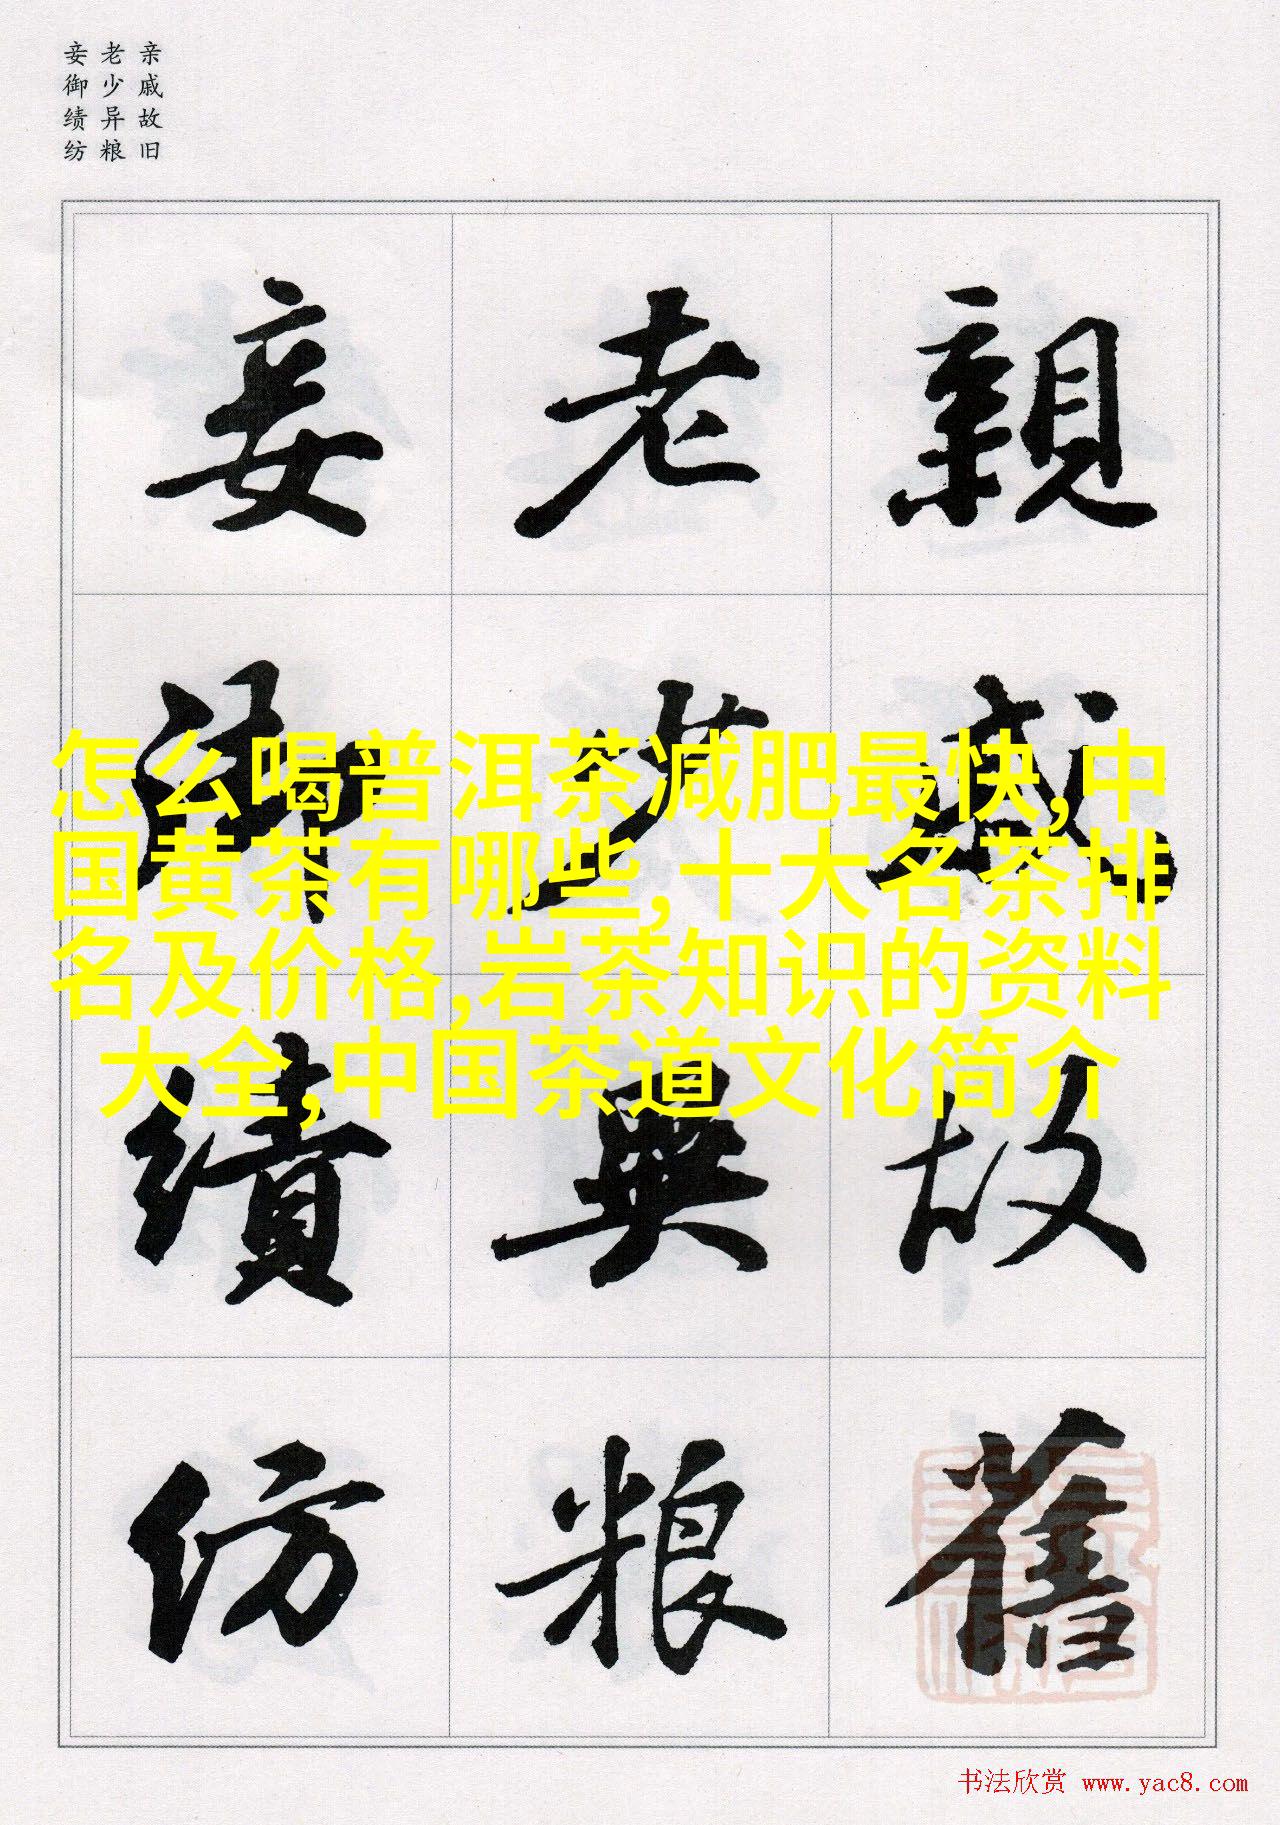 亲戚故旧
老少异粮
妾御绩纺
親戚故舊
老少異粮
妾御績紡
怎么喝普洱茶减肥最快,中
国黄茶有哪些,十大名茶排
名及价格,岩茶知识的资料
大全,中国茶道文化简介
书法欣赏 www.yac8.com